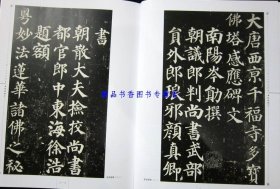 大唐西京千福寺多寶
佛塔感應碑文
南陽岑勛撰
朝議郎判尚書武部
員外郎琅邪顏真卿
書
朝散大夫撿挍尚書
都官郎中東海徐浩
題額
粵妙法蓮華諸佛之秘
品悦书香图书专营店